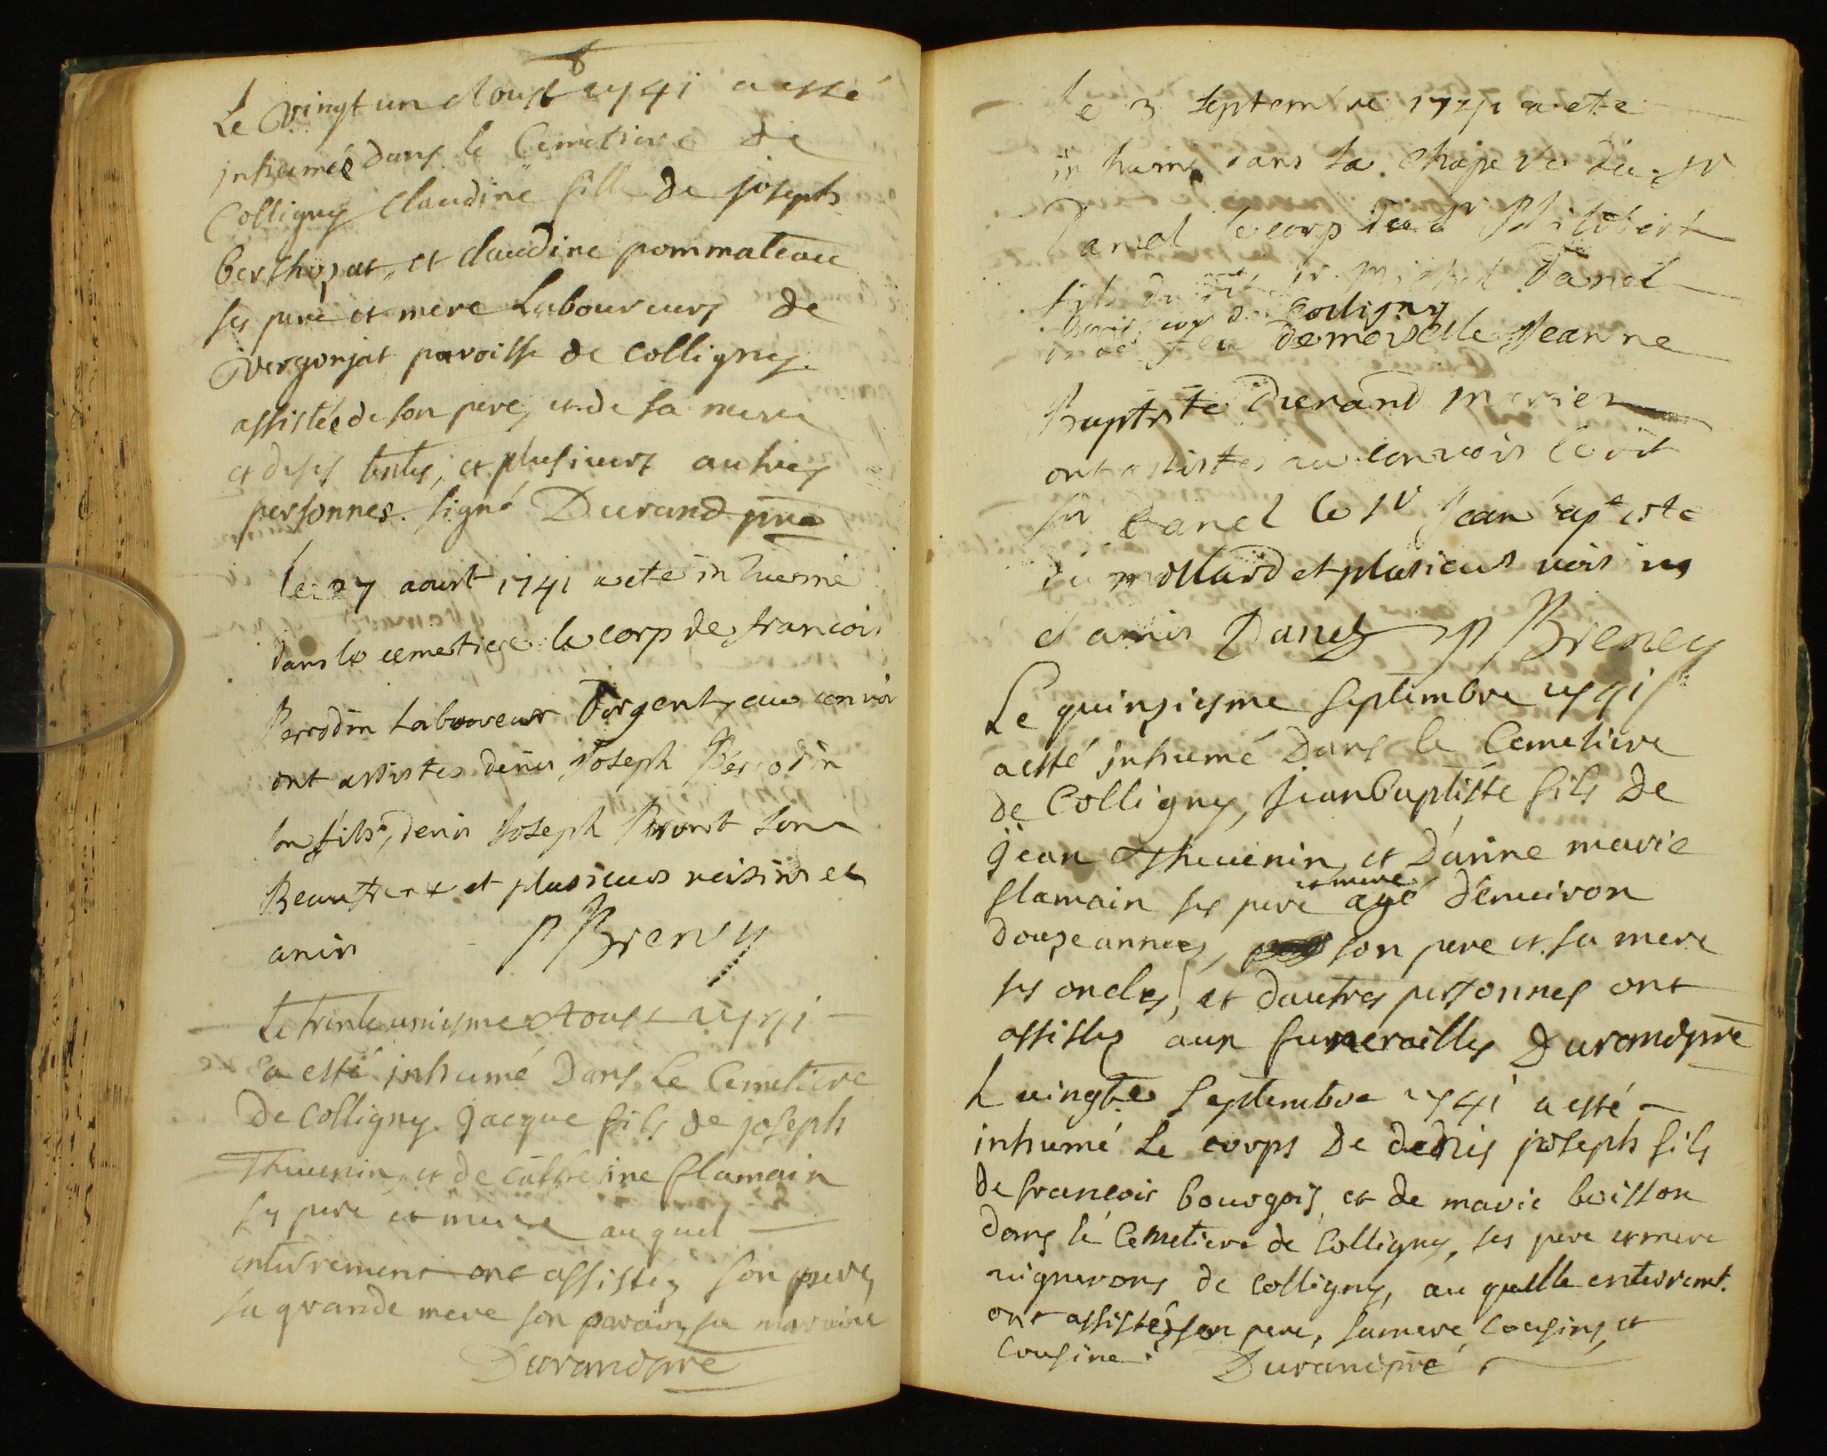 Le vingt un Aoust 1741 a esté
inhumée dans le Cemetiere de
Colligny Claudine fille de joseph
berthozat, et claudine pommateau
ses pere et mere Laboureurs de
vergonjat paroisse de colligny.
assistée de son pere, et de sa mere
et de ses tentes, et plusieurs autres
personnes. signé Durand pre
le 27 aoust 1741 a ete inhumé
dans le cemetiere le corp de francois
Perrodin Laboureur Dorgent, au convoi
ont assistes denis Joseph Perodin
son fils, denis Joseph son
et plusieurs voisins et
amis P Breney
Le trente uniesme Aoust 1741
a esté inhumé Dans Le Cemetiere
De Colligny. Jacque fils de joseph
Thuenin, et de catherine flamain
ses pere et mere auquel
enterrement ont assistez son pere,
sa grande mere son parain, sa maraine
Durand pre
le 3 septembre 1741 a ete
inhumé dans la chapelle du Sr
Danel le corp du Sr Philibert
fils du Sr Michel Danel
de Colligny
et de feu demoiselle Jeanne
Baptiste Durand mariez
ont assistes au convois ledit
Sr Danel le Sr Jean baptiste
du mollard et plusieurs voisins
et amis Danel P Breney
Le quinziesme septembre 1741
a esté inhumé Dans le Cemetiere
de Colligny, Jean baptiste fils De
Jean Thuenin, et D'anne marie
flamain ses pere et mere agé d'environ
douze annees, son pere et sa mere
ses oncles, et dautres personnes ont
assistez aux funerailles Durand pre
Le vingte septembre 1741 a esté
inhumé Le corps De denis joseph fils
De francois bourgois, et de marie boisson
dans le Cemetiere de Colligny, ses pere et mere
vignerons de Colligny, au quelle enterremt.
ont assistés son pere, sa mere, cousins, et
cousine. Durand pre